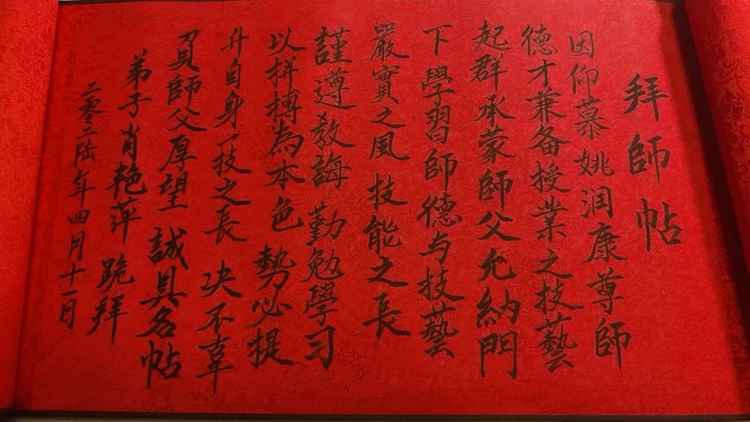 拜師帖
因仰慕姚润康尊師
德才兼备授業之技藝
起群承蒙師父允納門
下學習師德与技藝
嚴實之风技能之長
謹遵教誨勤勉學习
以拼搏為本色勢必提
升自身一技之長决不辜
負師父厚望誠具名帖
弟子肖艳萍跪拜
二零二陆年四月十一日